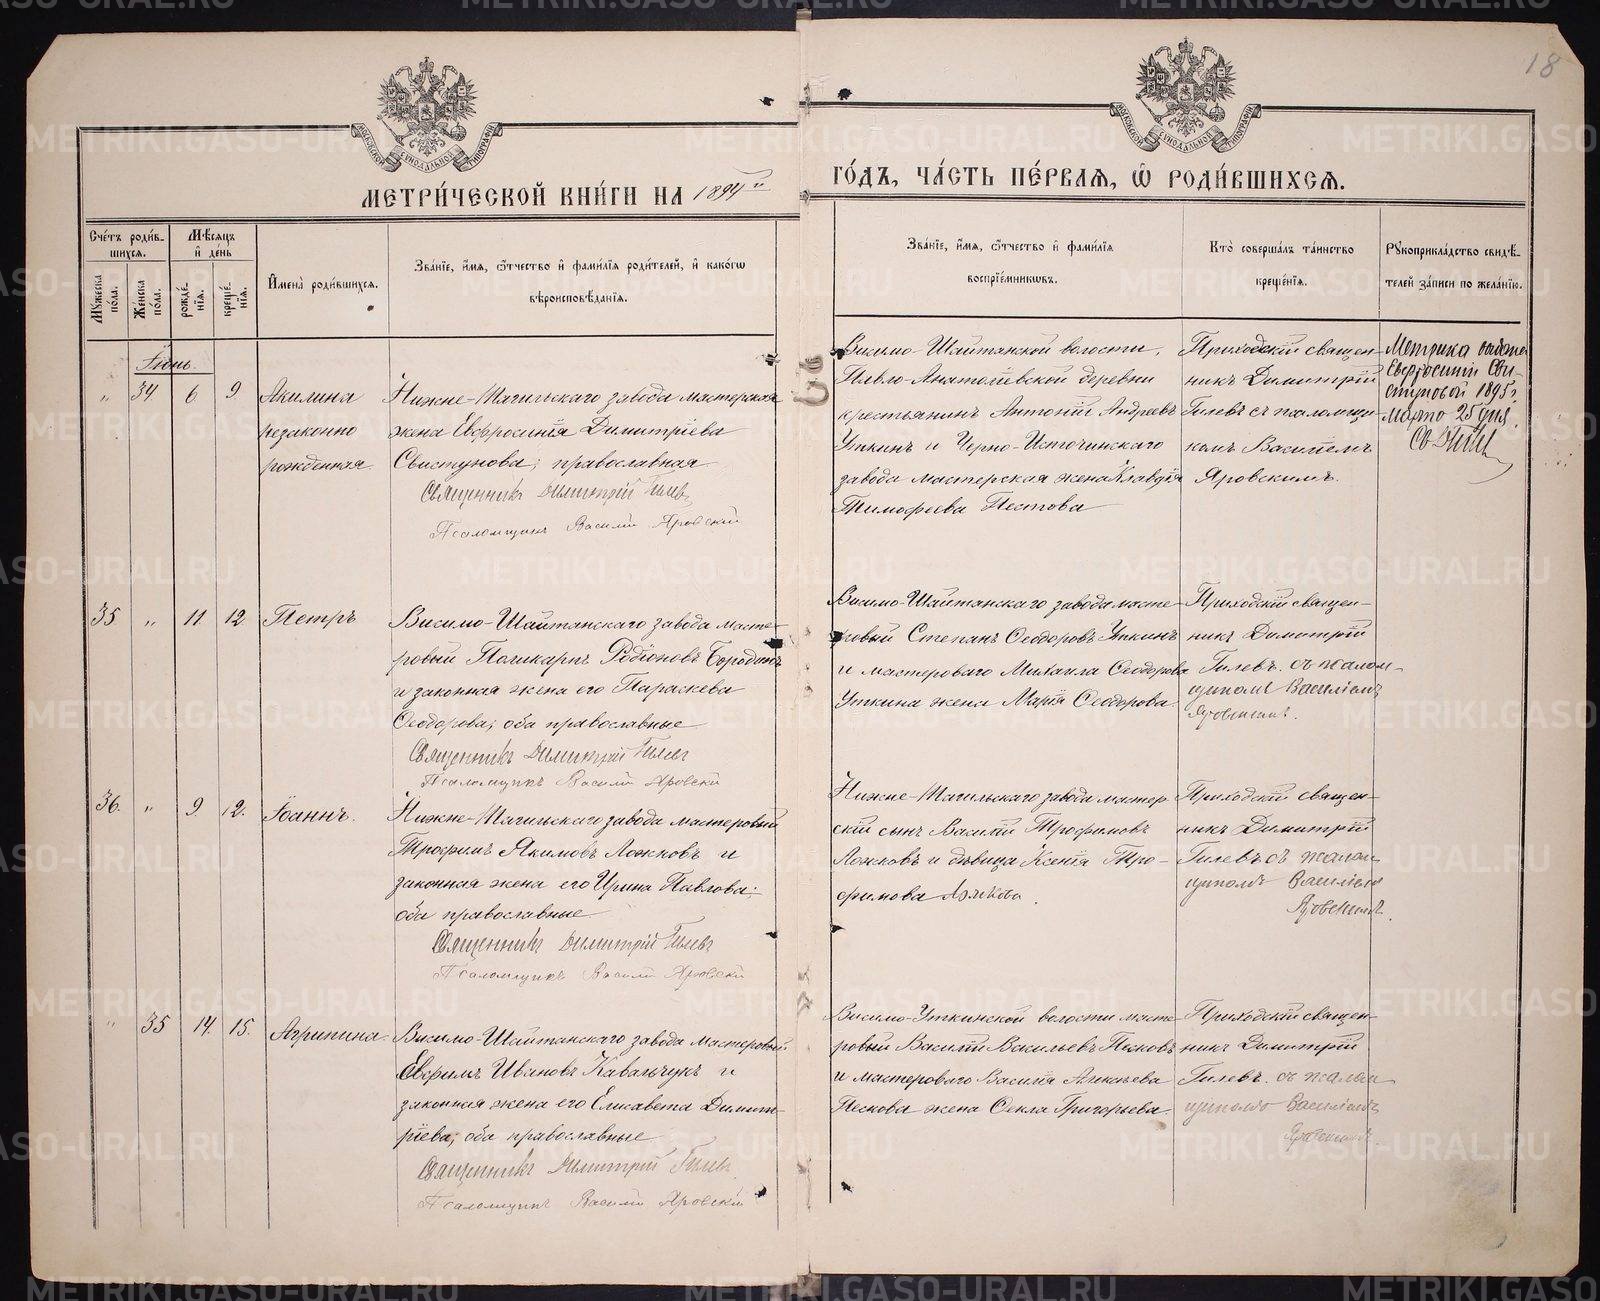 18
МОСКОВСКОЙ СѴНОДАЛЬНОЙ ТИПОГРАФІИ
МОСКОВСКОЙ СѴНОДАЛЬНОЙ ТИПОГРАФІИ
МЕТРИ́ЧЕСКОЙ КНИ́ГИ НА 1894й
ГО́ДЪ, ЧА́СТЬ ПЕ́РВАѦ, Ѡ҆ РОДИ́ВШИХСѦ.
Сче́тъ роди́в-
шихся.
Мꙋ́жеска по́ла.
Же́нска по́ла.
Мѣ́сяцъ
и҆ де́нь
рожде́-
нїя.
креще́-
нїя.
И҆мена̀ роди́вшихся.
Зва́нїе, и҆́мя, ѻ҆́тчество и҆ фами́лїя роди́телей, и҆ како́гѡ
вѣроисповѣ́данїя.
Зва́нїе, и҆́мя, ѻ҆́тчество и҆ фами́лїя
воспрїе́мниковъ.
Кто̀ соверша́лъ та́инство
креще́нїя.
Рꙋкоприкла́дство свидѣ́-
телей за́писи по жела́нїю.
Іюнь.
„ 34 6 9. Акилина
незаконно
рожденная
Нижне-Тагильскаго завода мастерская
жена Евфросинія Димитріева
Свистунова; православная
Священникъ Димитрій Гилевъ
Псаломщикъ Василій Яровскій
Висимо-Шайтанской волости,
Павло-Анатольевской деревни
крестьянинъ Антоній Андреевъ
Уткинъ и Черно-Источинскаго
завода мастерская жена Клавдія
Тимофеева Пестова
Приходскій священ-
никъ Димитрій
Гилевъ съ псаломщи-
комъ Василіемъ
Яровскимъ.
Метрика выдана
Евфросиніи Сви-
стуновой 1895 г.
Марта 25 дня.
35 „ 11 12 Петръ
Висимо-Шайтанскаго завода масте-
ровый Поликарпъ Родіоновъ Бородинъ
и законная жена его Параскева
Ѳеодорова; оба православные
Священникъ Димитрій Гилевъ
Псаломщикъ Василій Яровскій
Висимо-Шайтанскаго завода масте-
ровый Степанъ Ѳеодоровъ Уткинъ
и мастероваго Михаила Ѳеодорова
Уткина жена Марія Ѳеодорова.
Приходскій священ-
никъ Димитрій
Гилевъ съ псалом-
щикомъ Василіемъ
Яровскимъ.
36. „ 9 12. Іоаннъ.
Нижне-Тагильскаго завода мастеровый
Трофимъ Якимовъ Ложковъ и
законная жена его Ирина Павлова;
оба православные
Священникъ Димитрій Гилевъ
Псаломщикъ Василій Яровскій
Нижне-Тагильскаго завода мастер-
скій сынъ Василій Трофимовъ
Ложковъ и дѣвица Ксенія Тро-
фимова Ложкова.
Приходскій священ-
никъ Димитрій
Гилевъ съ псалом-
щикомъ Василіемъ
Яровскимъ.
„ 35 14. 15. Агрипина.
Висимо-Шайтанскаго завода мастеровый
Евфимъ Ивановъ Кавальчукъ и
законная жена его Елисавета Димит-
ріева; оба православные
Священникъ Димитрій Гилевъ
Псаломщикъ Василій Яровскій
Висимо-Уткинской волости масте-
ровый Василій Васильевъ Песковъ
и мастероваго Василія Алексѣева
Пескова жена Ѳекла Григорьева.
Приходскій священ-
никъ Димитрій
Гилевъ съ псалом-
щикомъ Василіемъ
Яровскимъ.
METRIKI.GASO-URAL.RU